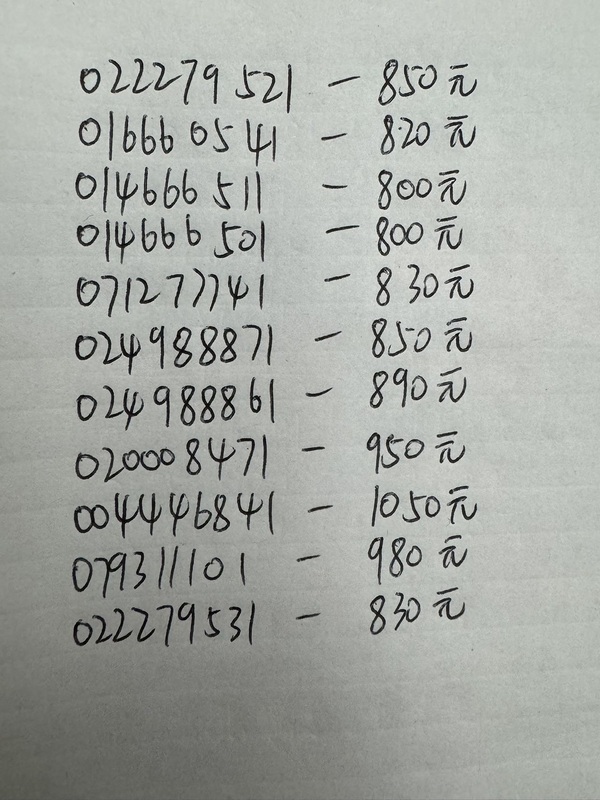 022279521 - 850元
016660541 - 820元
014666511 - 800元
014666501 - 800元
071277741 - 830元
024988871 - 850元
024988861 - 890元
020008471 - 950元
004446841 - 1050元
079311101 - 980元
022279531 - 830元